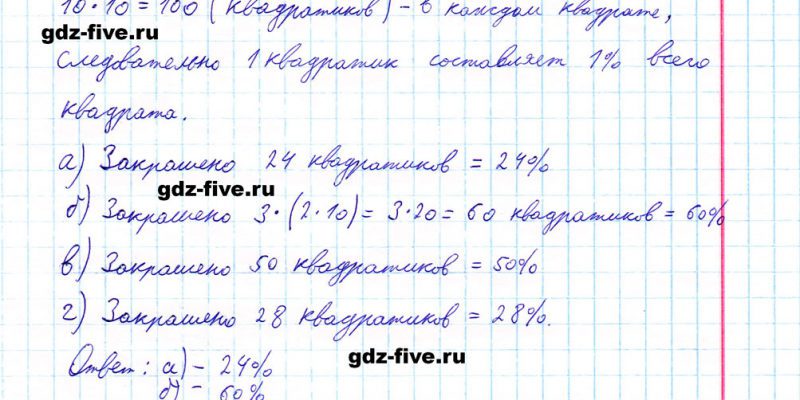 10 · 10 = 100 (квадратиков) - в каждом квадрате,
gdz-five.ru
следовательно 1 квадратик составляет 1% всего
квадрата.
а) Закрашено 24 квадратиков = 24%
gdz-five.ru
б) Закрашено 3 · (2 · 10) = 3 · 20 = 60 квадратиков = 60%
в) Закрашено 50 квадратиков = 50%
г) Закрашено 28 квадратиков = 28%.
Ответ: а) - 24%
gdz-five.ru
б) - 60%